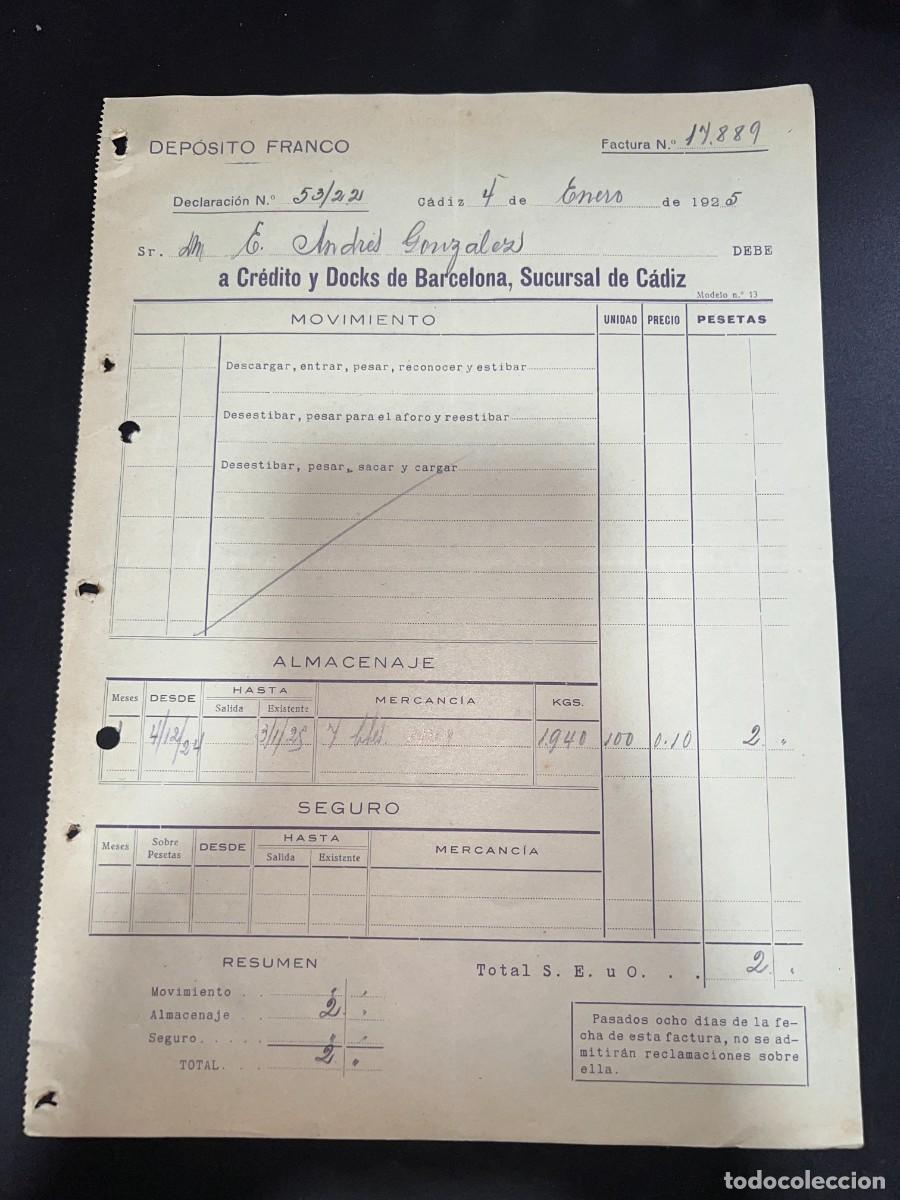 DEPÓSITO FRANCO
Factura N.º 17.889
Declaración N.º 53/22 Cádiz 4 de Enero de 1925
Sr. Dn E. Andrés González DEBE
a Crédito y Docks de Barcelona, Sucursal de Cádiz
Modelo n.º 13
MOVIMIENTO UNIDAD PRECIO PESETAS
Descargar, entrar, pesar, reconocer y estibar
Desestibar, pesar para el aforo y reestibar
Desestibar, pesar, sacar y cargar
ALMACENAJE
Meses DESDE HASTA MERCANCÍA KGS.
Salida Existente
4/12/24 3/1/25 7 1.940 100 0.10 2 "
SEGURO
Meses Sobre Pesetas DESDE HASTA MERCANCÍA
Salida Existente
RESUMEN
Total S. E. u O. . . 2 "
Movimiento . . " "
Almacenaje . . 2 "
Seguro. . . . . " "
TOTAL. . . 2 "
Pasados ocho días de la fe-
cha de esta factura, no se ad-
mitirán reclamaciones sobre
ella.
todocoleccion